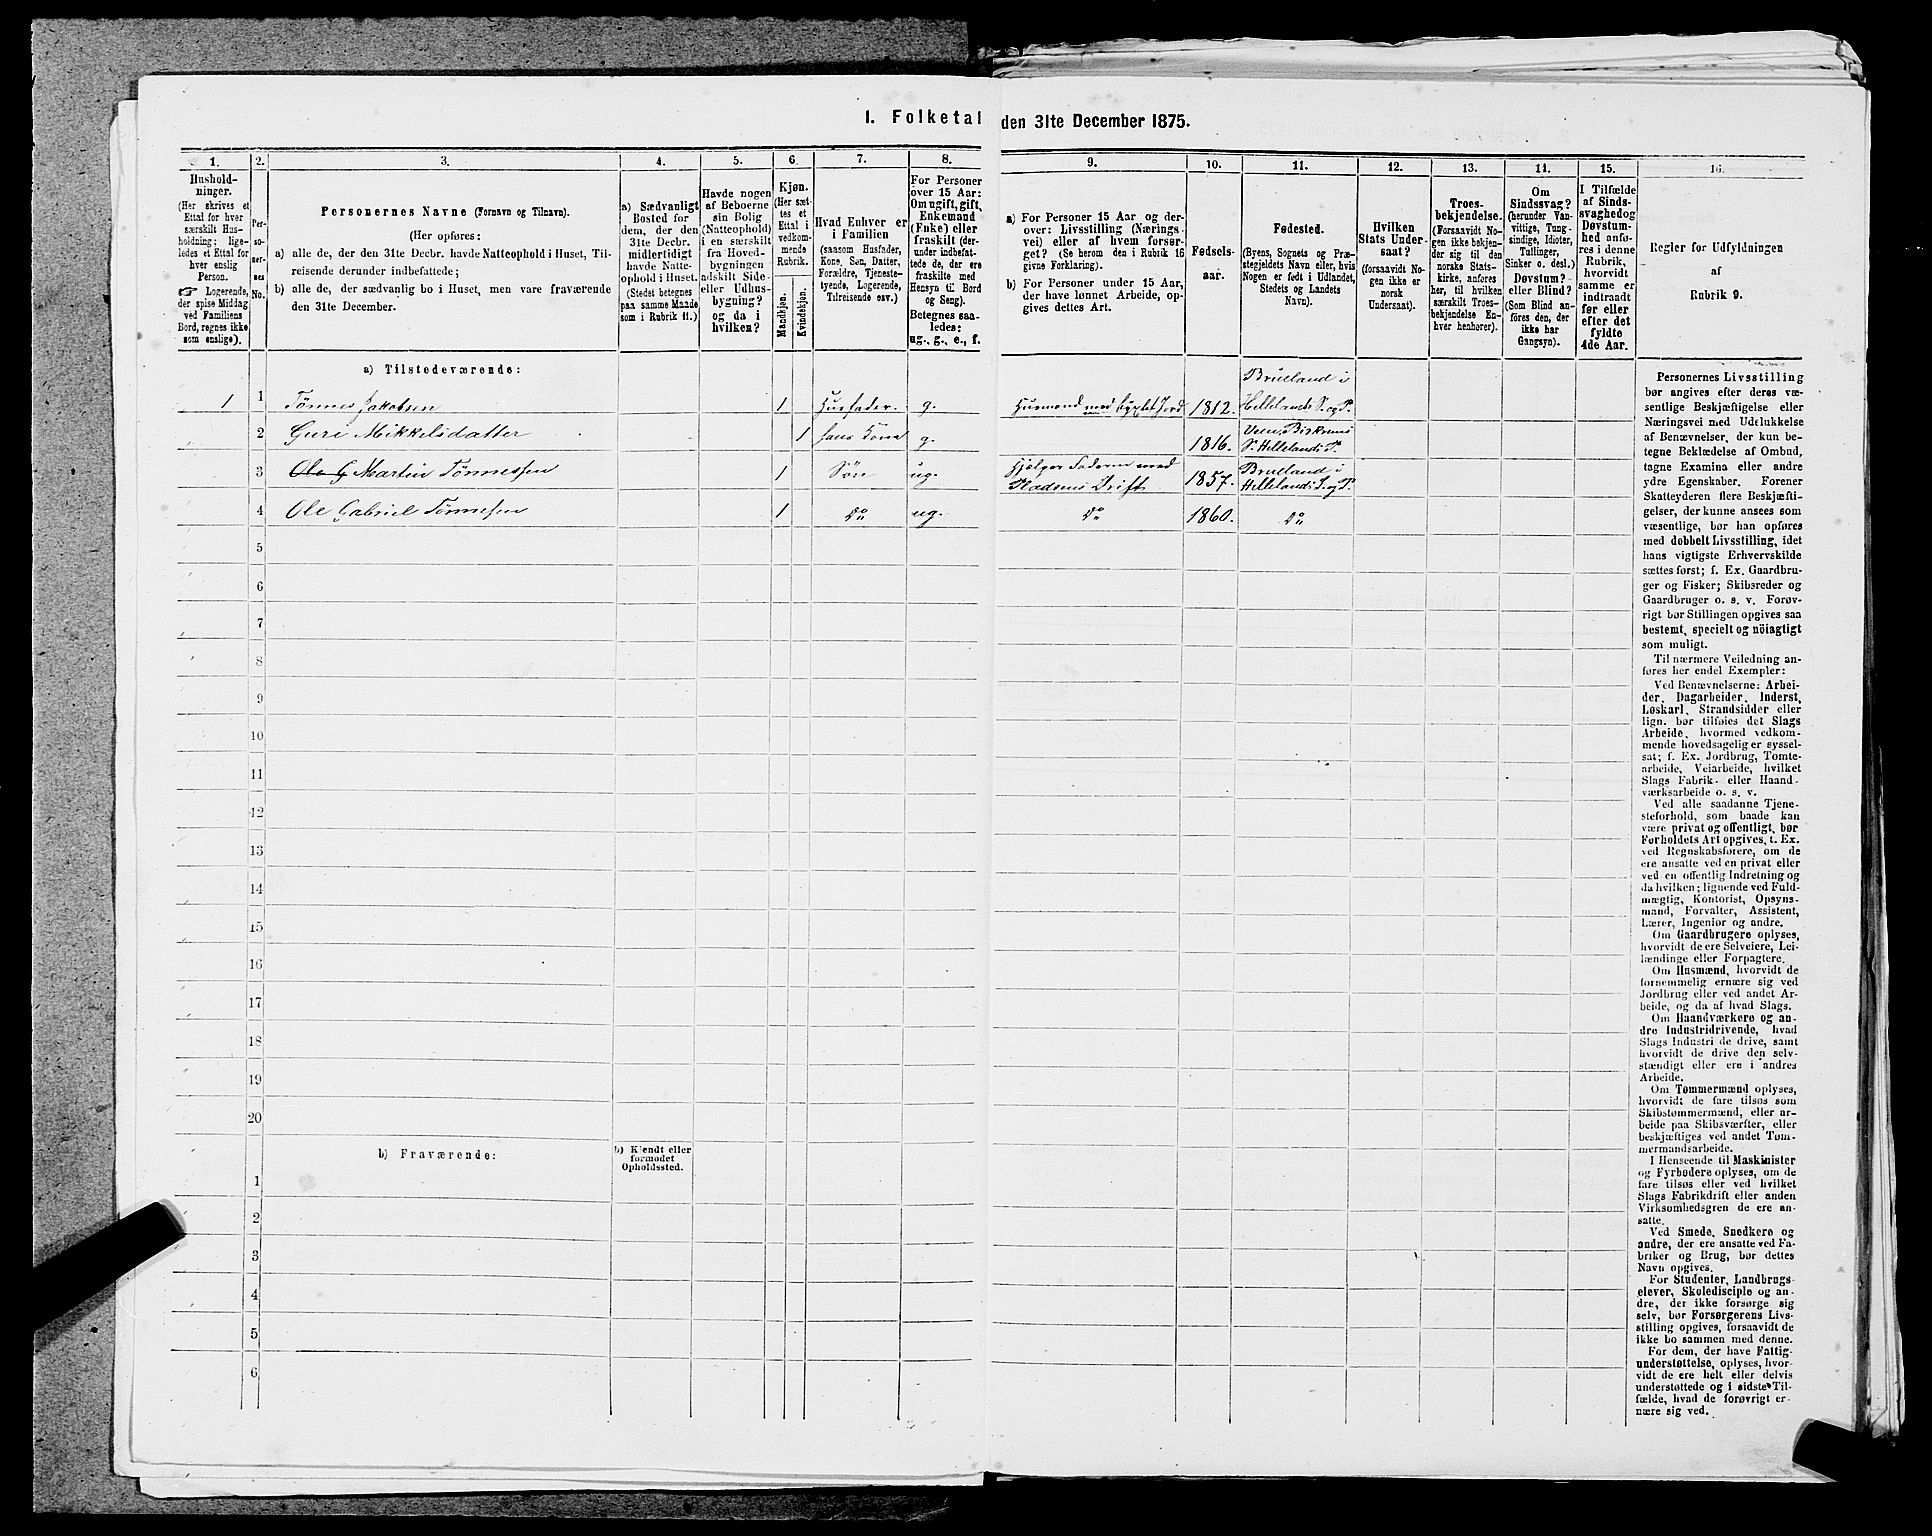 1. Folketal den 31te December 1875.
1. 2. 3. 4. 5. 6. 7. 8. 9. 10. 11. 12. 13. 14. 15. 16.
Hushold-
ninger.
(Her skrives et
Ettal for hver
særskilt Hus-
holdning; lige-
ledes et Ettal for
hver enslig
Person.
☞ Logerende,
der spise Middag
ved Familiens
Bord, regnes ikke
som enslige).
Per-
so-
ner-
nes
No.
Personernes Navne (Fornavn og Tilnavn).
(Her opføres:
a) alle de, der den 31te Decbr. havde Natteophold i Huset, Til-
reisende derunder indbefattede;
b) alle de, der sædvanlig bo i Huset, men vare fraværende
den 31te December.
a) Sædvanligt
Bosted for
dem, der den
31te Decbr.
midlertidigt
havde Natte-
ophold i Huset.
(Stedet betegnes
paa samme Maade
som i Rubrik 11.)
Havde nogen
af Beboerne
sin Bolig
(Natteophold)
i en særskilt
fra Hoved-
bygningen
adskilt Side-
eller Udhus-
bygning?
og da i
hvilken?
Kjøn.
(Her sæt-
tes et
Ettal i
vedkom-
mende
Rubrik.
Mandkjøn.
Kvindekjøn.
Hvad Enhver er
i Familien
(saasom Husfader,
Kone, Søn, Datter,
Forældre, Tjeneste-
tyende, Logerende,
Tilreisende osv.)
For Personer
over 15 Aar:
Om ugift, gift,
Enkemand
(Enke) eller
fraskilt (der-
under indbefat-
tede de, der ere
fraskilte med
Hensyn til Bord
og Seng).
Betegnes saa-
ledes:
ug., g., e., f.
a) For Personer 15 Aar og der-
over: Livsstilling (Nærings-
vei) eller af hvem forsør-
get? (Se herom den i Rubrik 16
givne Forklaring).
b) For Personer under 15 Aar,
der have lønnet Arbeide, op-
gives dettes Art.
Fødsels-
aar.
Fødested.
(Byens, Sognets og Præ-
stegjeldets Navn eller, hvis
Nogen er født i Udlandet,
Stedets og Landets
Navn).
Hvilken
Stats Under-
saat?
(forsaavidt No-
gen ikke er
norsk
Undersaat).
Troes-
bekjendelse.
(Forsaavidt No-
gen ikke bekjen-
der sig til den
norske Stats-
kirke, anføres
her, til hvilken
særskilt Troes-
bekjendelse En-
hver henhører).
Om
Sindssvag?
(herunder Van-
vittige, Tung-
sindige, Idioter,
Tullinger,
Sinker o. desl.)
Døvstum?
eller Blind?
(Som Blind an-
føres den, der
ikke har
Gangsyn).
I Tilfælde
af Sinds-
svaghed og
Døvstum-
hed anfø-
res i denne
Rubrik,
hvorvidt
samme er
indtraadt
før eller
efter det
fyldte
4de Aar.
Regler for Udfyldningen
af
Rubrik 9.
a) Tilstedeværende:
1 1 Tønnes Jakobsen 1 Husfader. g. Husmand med bygslet Jord 1812. Brulland i Hellelands S. og P.
2 Guri Mikkelsdatter 1 hans Kone g. 1816. S. Hellelands P.
3 Ole G Martin Tønnessen 1 Søn ug. Hjelper Faderen med Pladsens Drift 1857. Brulland i Hellelands S. og P.
4 Ole Gabriel Tønnesen 1 Do ug. Do 1860. Do
5
6
7
8
9
10
11
12
13
14
15
16
17
18
19
20
b) Fraværende:
b) Kjendt eller
formodet
Opholdssted.
1
2
3
4
5
6
Personernes Livsstilling
bør angives efter deres væ-
sentlige Beskjæftigelse eller
Næringsvei med Udelukkelse
af Benævnelser, der kun be-
tegne Beklædelse af Ombud,
tagne Examina eller andre
ydre Egenskaber. Forener
Skatteyderen flere Beskjæfti-
gelser, der kunne ansees som
væsentlige, bør han opføres
med dobbelt Livsstilling, idet
hans vigtigste Erhvervskilde
sættes først; f. Ex. Gaardbru-
ger og Fisker; Skibsreder og
Gaardbruger o. s. v. Forøv-
rigt bør Stillingen opgives saa
bestemt, specielt og nöiagtigt
som muligt.
Til nærmere Veiledning an-
føres her endel Exempler:
Ved Benævnelserne: Arbei-
der, Dagarbeider, Inderst,
Løskarl, Strandsidder eller
lign. bør tilføies det Slags
Arbeide, hvormed vedkom-
mende hovedsagelig er syssel-
sat; f. Ex. Jordbrug, Tomte-
arbeide, Veiarbeide, hvilket
Slags Fabrik- eller Haand-
værksarbeide o. s. v.
Ved alle saadanne Tjene-
steforhold, som baade kan
være privat og offentligt, bør
Forholdets Art opgives, t. Ex.
ved Regnskabsførere, om de
ere ansatte ved en privat eller
ved en offentlig Indretning og
da hvilken; lignende ved Fuld-
mægtig, Kontorist, Opsyns-
mand, Forvalter, Assistent,
Lærer, Ingeniør og andre.
Om Gaardbrugere oplyses,
hvorvidt de ere Selveiere, Lei-
lændinge eller Forpagtere.
Om Husmænd, hvorvidt de
fornemmelig ernære sig ved
Jordbrug eller ved andet Ar-
beide, og da af hvad Slags.
Om Haandværkere og an-
dre Industridrivende, hvad
Slags Industri de drive, samt
hvorvidt de drive den selv-
stændigt eller ere i andres
Arbeide.
Om Tømmermænd oplyses,
hvorvidt de fare tilsøs som
Skibstømmermænd, eller ar-
beide paa Skibsværfter, eller
beskjæftiges ved andet Tøm-
mermandsarbeide.
I Henseende til Maskinister
og Fyrbødere oplyses, om de
fare tilsøs eller ved hvilket
Slags Fabrikdrift eller anden
Virksomhedsgren de ere an-
satte.
Ved Smede, Snedkere og
andre, der ere ansatte ved Fa-
briker og Brug, bør dettes
Navn opgives.
For Studenter, Landbrugs-
elever, Skoledisciple og an-
dre, der ikke forsørge sig
selv, bør Forsørgerens Livs-
stilling opgives, forsaavidt de
ikke bo sammen med denne.
For dem, der have Fattig-
understøttelse, oplyses, hvor-
vidt de ere helt eller delvis
understøttede og i sidste Til-
fælde, hvad de forøvrigt er-
nære sig ved.